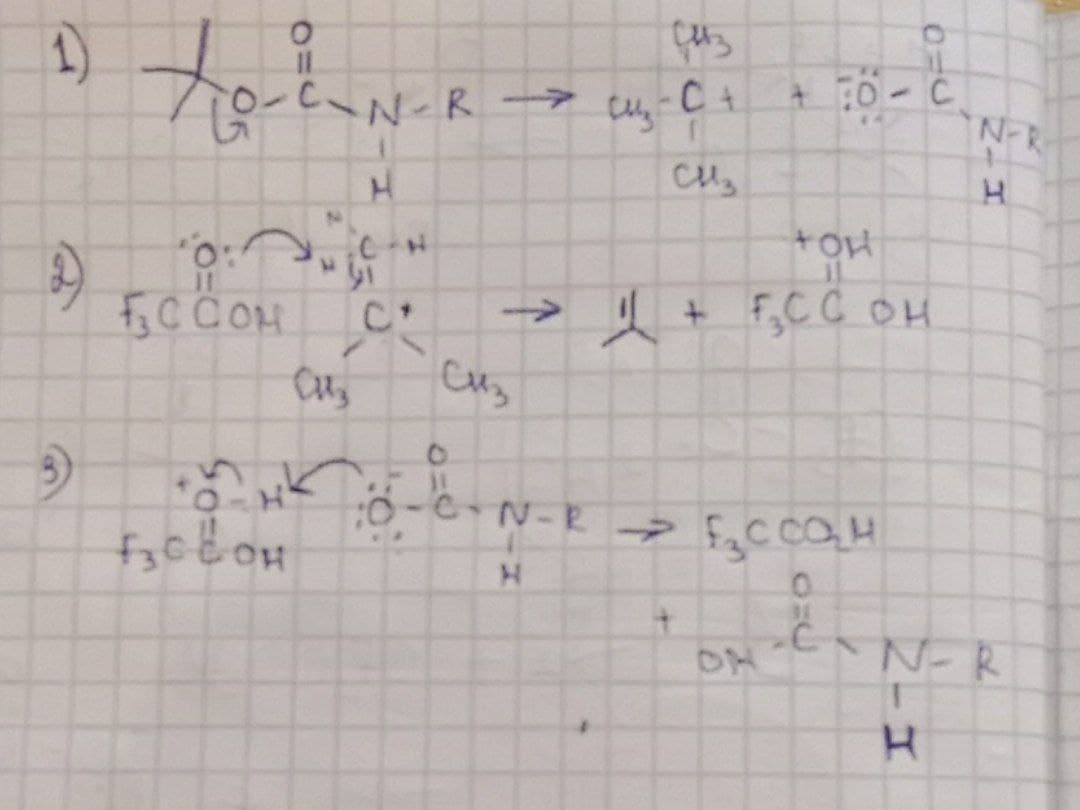 1) O-C(=O)-N(H)-R → CH3-C+(CH3)(CH3) + -:O-C(=O)-N(H)-R
2) F3CC(=O:)OH H-C(H)=C+(CH3)(CH3) → + F3CC(=+OH)OH
3) F3CC(=+O-H)OH -:O-C(=O)-N(H)-R → F3CCO2H
+ OH-C(=O)-N(H)-R